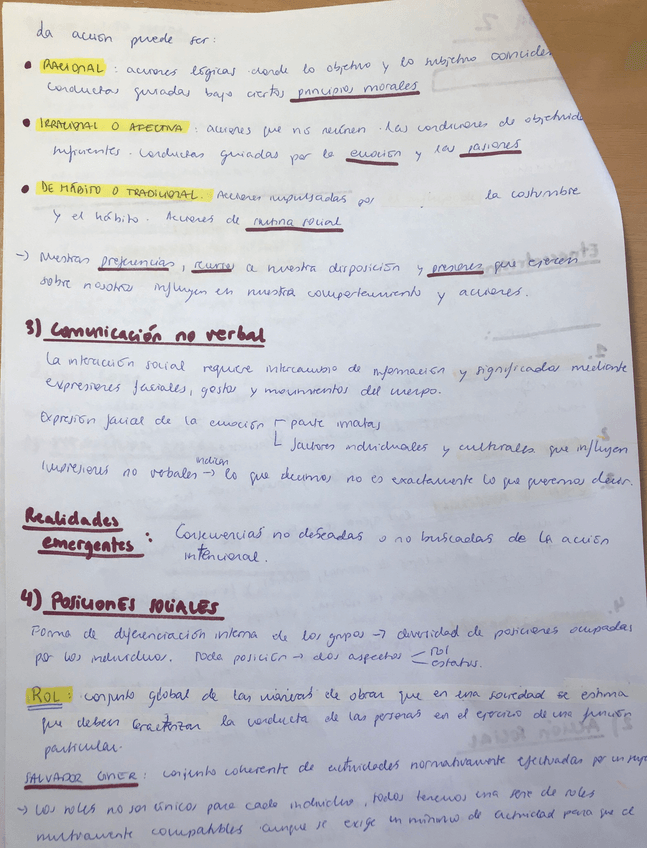 La acción puede ser:
• RACIONAL: acciones lógicas donde lo objetivo y lo subjetivo coinciden
conductas guiadas bajo ciertos principios morales
• IRRACIONAL O AFECTIVA: acciones que no reúnen las condiciones de objetivida
suficientes. Conductas guiadas por la emoción y las pasiones
• DE HÁBITO O TRADICIONAL. Acciones impulsadas por la costumbre
y el hábito. Acciones de rutina social
→ Nuestras preferencias, recursos a nuestra disposición y presiones que ejercen
sobre nosotros influyen en nuestro comportamiento y acciones.
3) Comunicación no verbal
La interacción social requiere intercambio de información y significados mediante
expresiones faciales, gestos y movimientos del cuerpo.
Expresión facial de la emoción parte innatas
factores individuales y culturales que influyen
indican
Impresiones no verbales → lo que decimos no es exactamente lo que queremos decir.
Realidades
emergentes: Consecuencias no deseadas o no buscadas de la acción
intencional.
4) POSICIONES SOCIALES
Forma de diferenciación interna de los grupos → diversidad de posiciones ocupadas
por los individuos. Toda posición → dos aspectos rol
estatus.
ROL: conjunto global de las maneras de obrar que en una sociedad se estima
que deben caracterizar la conducta de las personas en el ejercicio de una función
particular.
SALVADOR GINER: conjunto coherente de actividades normativamente efectuadas por un
→ Los roles no son únicos para cada individuo, todos tenemos una serie de roles
mutuamente compatibles aunque se exige un mínimo de actividad para que el